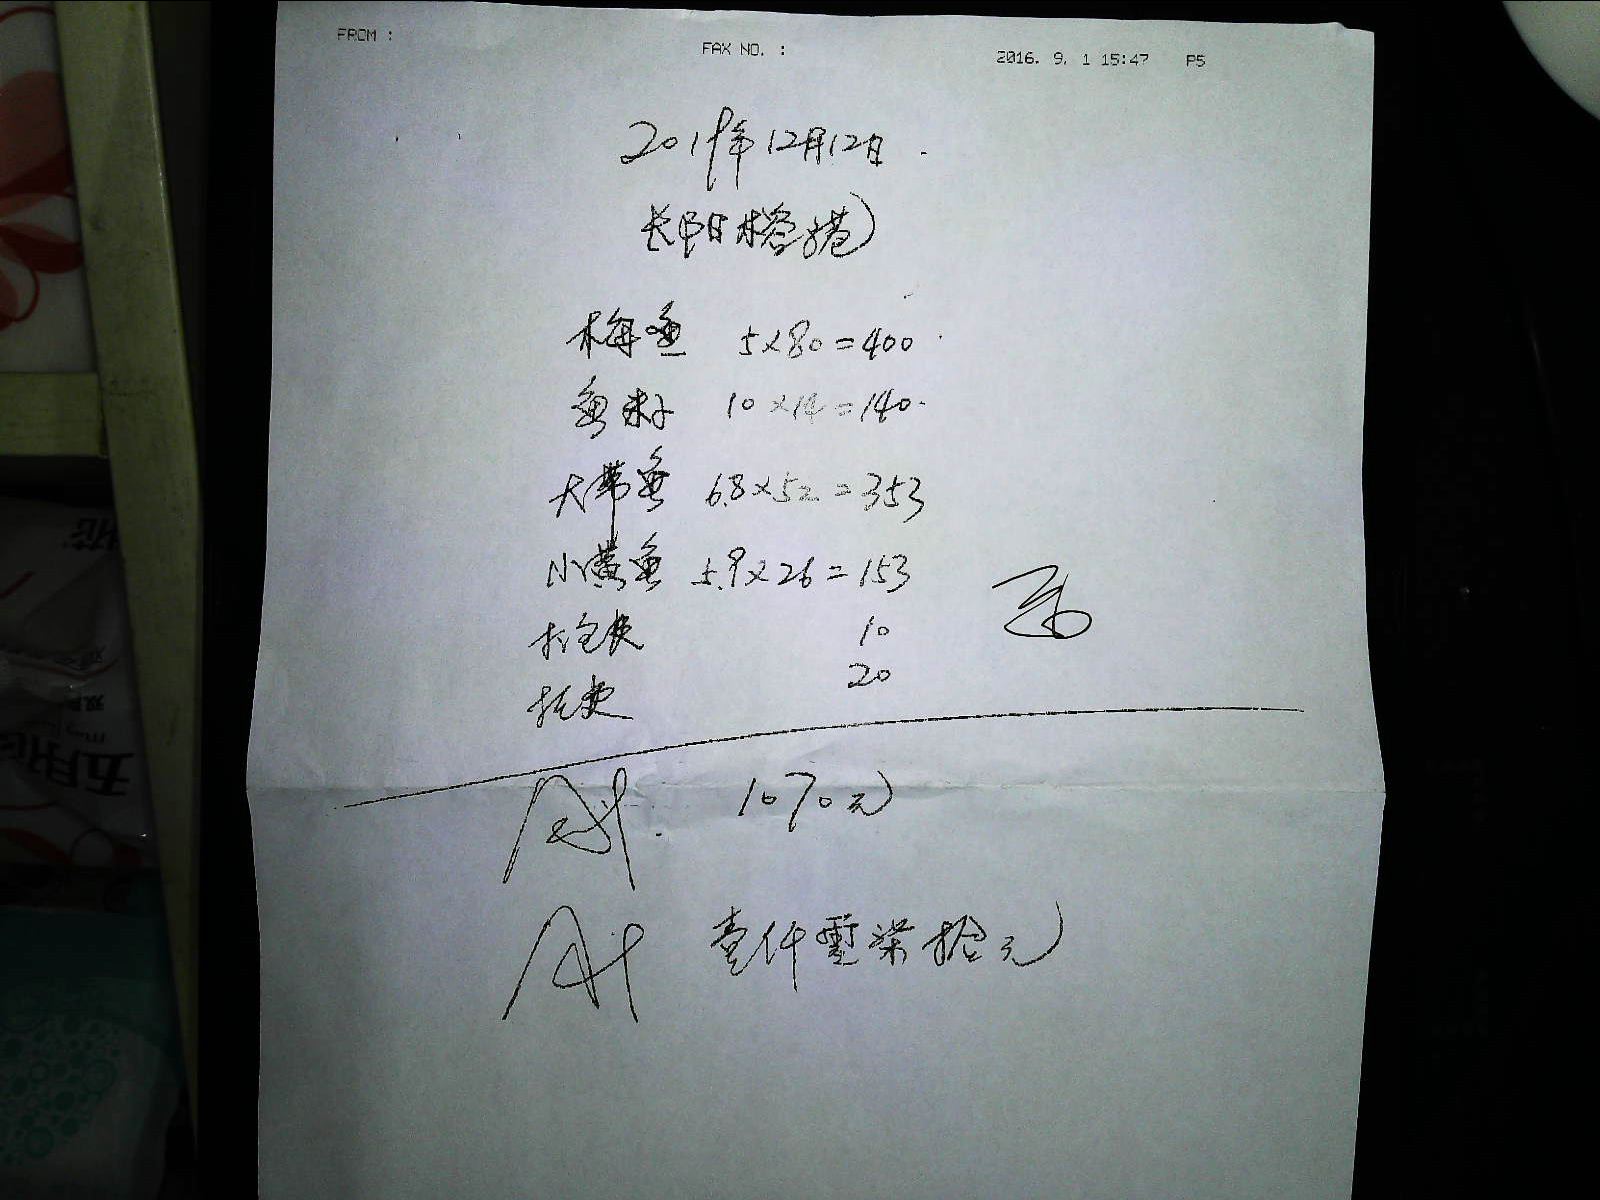 FROM :
FAX NO. :
2016. 9. 1 15:47 P5
2019年12月12日
梅鱼 5×80=400
鱼籽 10×14=140
大带鱼 6.8×52=353
小黄鱼 5.9×26=153
打包费 10
托费 20
1070元
壹仟零柒拾元
五月花